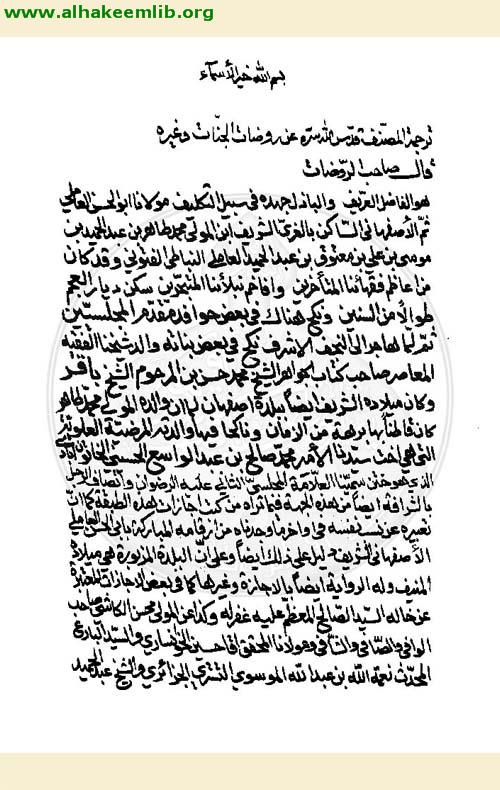 www.alhakeemlib.org
بسم الله خير الأسماء
ترجمة المصنف قدس الله سره عن روضات الجنات وغيره
قال صاحب الروضات
هو الفاضل العريف والباذل جهده في سبيل التكليف مولانا ابو الحسن العاملي
ثم الأصفهاني الساكن بالغري الشريف ابن المولى محمد طاهر بن عبد الحميد بن
موسى بن علي بن معتوق بن عبد الحميد العاملي النباطي الفتوني وقد كان
من اعاظم فقهائنا المتأخرين وافاخم نبلائنا المتبحرين سكن ديار العجم
طهو الأمن السنين ونكح هناك في بعض حوافد مقدم المجلسيين
ثم لما هاجر الى النجف الاشرف نكح في بعض بناته والد شيخنا الفقيه
المعاصر صاحب كتاب الجواهر الشيخ محمد حسن بن المرحوم الشيخ باقر
وكان ميلاده الشريف ايضا ببلدة اصفهان لان والده المولى محمد طاهر
كان قاطنا بها برهة من الأزمان وناكحا فيها والدته المرضية العلوية
التي هي اخت سيدنا الأمير محمد صالح بن عبد الواسع الحسيني الخاتون آبادي
الذي هو ختن سمينا العلامة المجلسي الثاني عليه الرضوان واتصاف الرجل
بالشرافة ايضا من هذه الجهة فيما تراه من كتب اجازات هذه الطبقة كما ان
تعبيره عن نفسه في اواخر ما وجدناه من ارقامه المباركة بابي الحسن العاملي
الأصفهاني الشريف دليل على ذلك ايضا وعلى ان البلدة المزبورة هي ميلاده
المنيف وله الرواية ايضا بالاجازة وغيرها كما في بعض الاجازات المعتبرة
عن خاله السيد الصالح المعظم عليه غفر له وكذا عن المولى محسن الكاشي صاحب
الوافي والصافي والشافي ومولانا المحقق اقا حسين الخوانساري والسيد البارع
المحدث نعمة الله بن عبد الله الموسوي التستري الجزائري والشيخ عبد الحميد